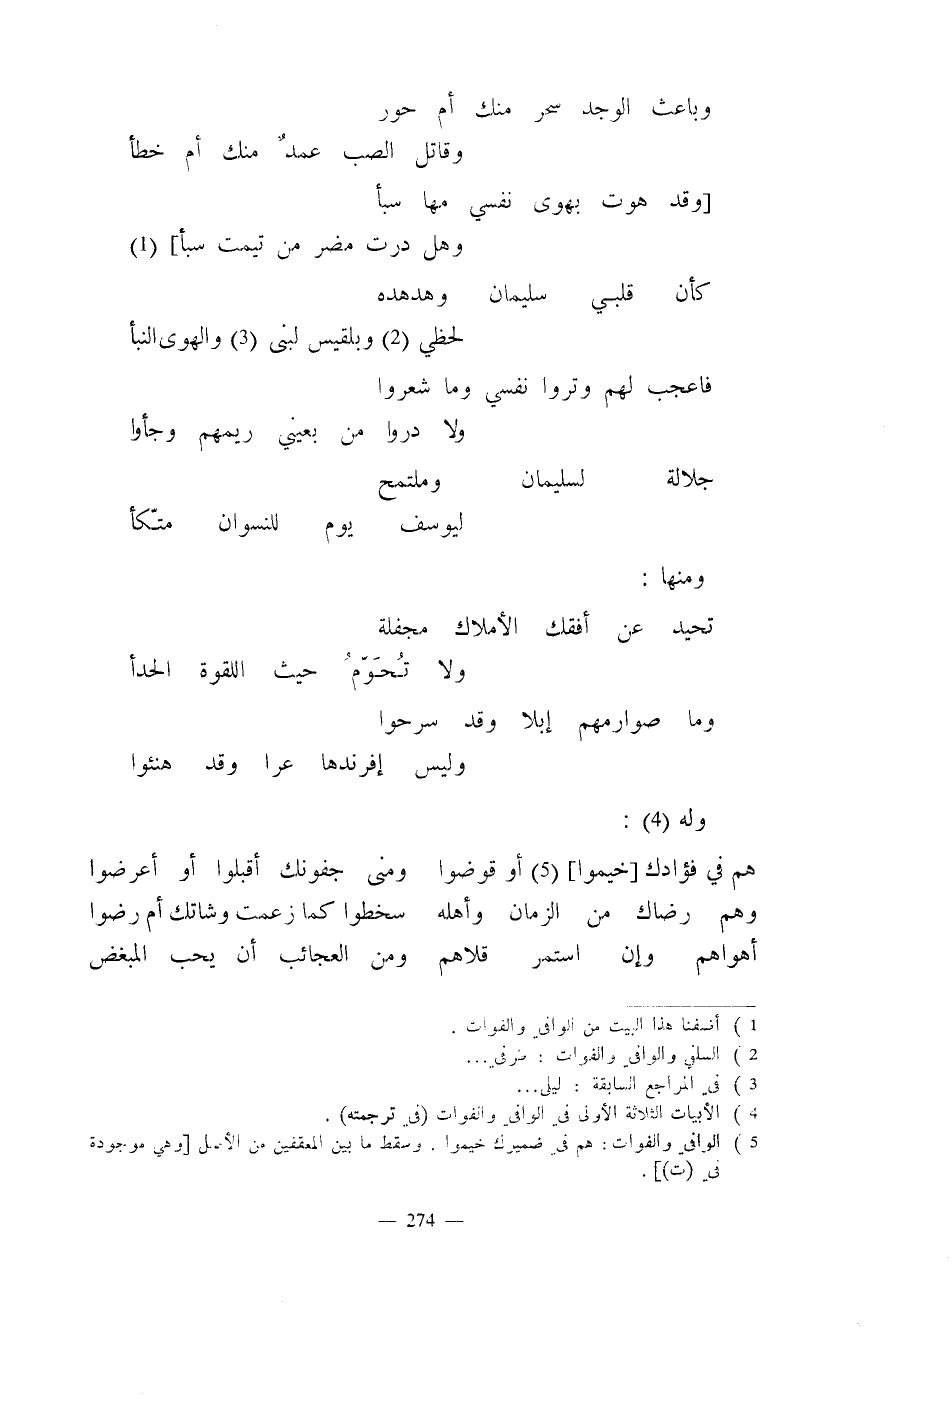 وباعث الوجد سحر منك أم حور
وقاتل الصب عمدٌ منك أم خطأ
[وقد هوت بهوى نفسي مها سبأ
وهل درت مضر من تيمت سبأ] (1)
كأن قلبي سليمان وهدهده
لحظي (2) وبلقيس لبنى (3) والهوى النبأ
فاعجب لهم وتروا نفسي وما شعروا
ولا دروا من بعيني ريمهم وجأوا
جلالة لسليمان وملتمح
ليوسف يوم للنسوان متّكأ
ومنها :
تحيد عن أفقك الأملاك مجفلة
ولا تُحَوّمُ حيث اللقوة الحدأ
وما صوارمهم إبلا وقد سرحوا
وليس إفرندها عرا وقد هنئوا
وله (4) :
هم في فؤادك [خيموا] (5) أو قوضوا ومنى جفونك أقبلوا أو أعرضوا
وهم رضاك من الزمان وأهله سخطوا كما زعمت وشاتك أم رضوا
أهواهم وإن استمر قلاهم ومن العجائب أن يحب المبغض
1 ) أضفنا هذا البيت من الوافي والفوات .
2 ) السلفي والوافي والفوات : طرفي...
3 ) في المراجع السابقة : ليلى...
4 ) الأبيات الثلاثة الأولى في الوافي والفوات (في ترجمته) .
5 ) الوافي والفوات : هم في ضميرك خيموا . وسقط ما بين المعقفين من الأصل [وهي موجودة
في (ت)] .
— 274 —